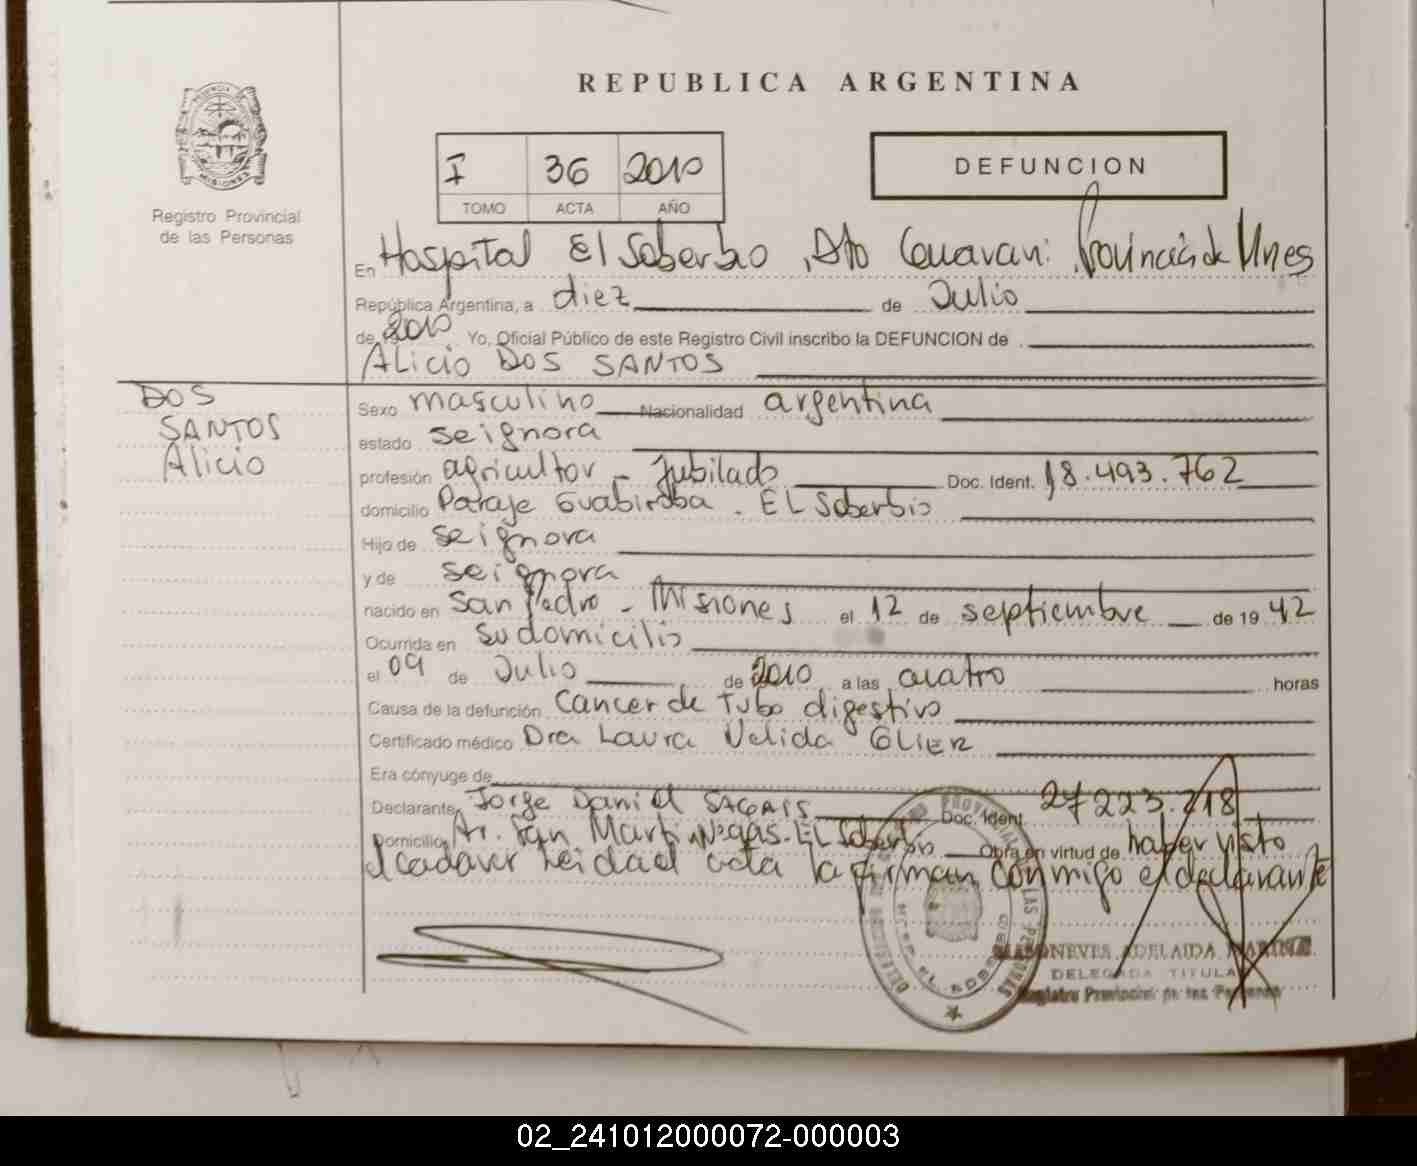 REPUBLICA ARGENTINA
I 36 2010
TOMO ACTA AÑO
DEFUNCION
Registro Provincial
de las Personas
En Hospital El Soberbio, Dto Guarani. Provincia de Mnes
República Argentina, a diez de Julio
de 2010 Yo, Oficial Público de este Registro Civil inscribo la DEFUNCION de
Alicio DOS SANTOS
DOS
SANTOS
Alicio
Sexo masculino Nacionalidad argentina
estado se ignora
profesión agricultor - Jubilado Doc. Ident. 18.493.762
domicilio Paraje Guabiroba. EL Soberbio
Hijo de se ignora
y de se ignora
nacido en San Pedro - Misiones el 12 de septiembre de 19 42
Ocurrida en su domicilio
el 09 de Julio de 2010 a las cuatro horas
Causa de la defunción Cancer de Tubo digestivo
Certificado médico Dra Laura Velida
Era cónyuge de
Declarante Jorge Daniel Doc. Ident. 27 223.718
Domicilio Av. San Martin EL Soberbio Obra en virtud de haber visto
el cadaver leida el acta la firman conmigo el declarante
NEVES ADELAIDA MARINA
DELEGADA TITULAR
Registro Provincial de las Personas
02_241012000072-000003